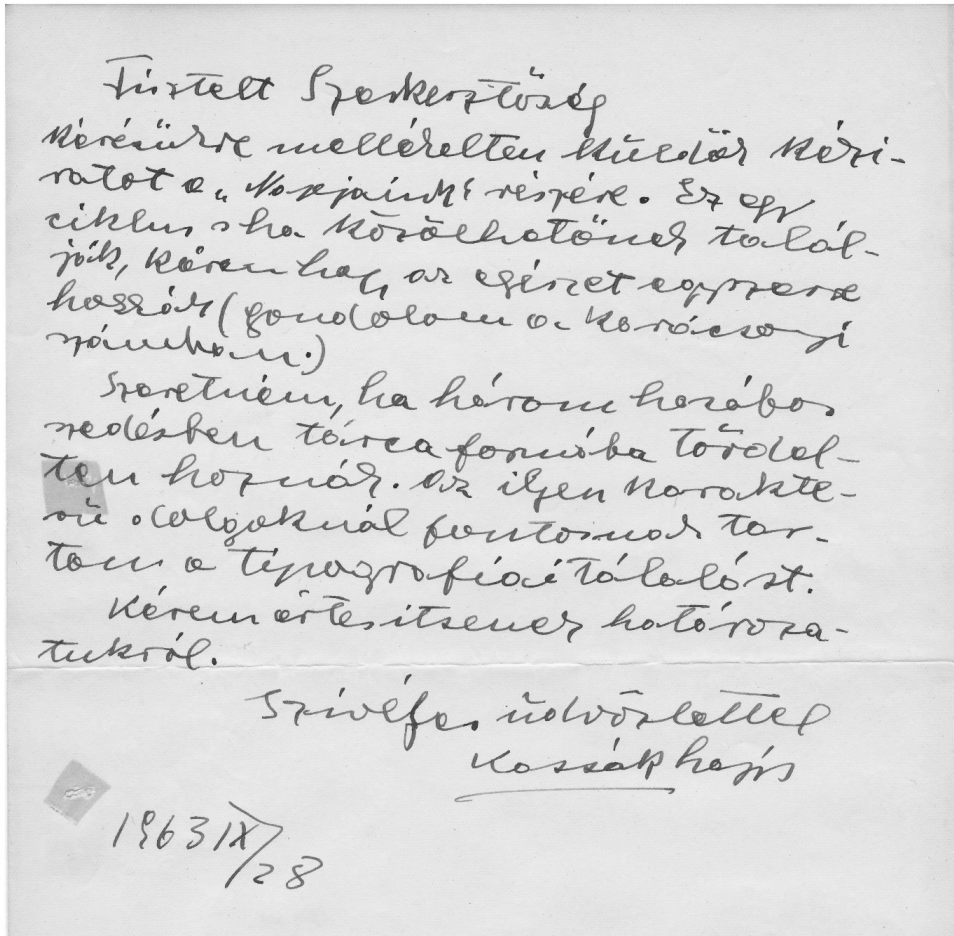 Tisztelt Szerkesztőség
Kérésükre mellékelten küldök kézi-
ratot a „Napjaink" részére. Ez egy
ciklus s ha közölhetőnek talál-
ják, kérem hogy az egészet egyszerre
hozzák (gondolom a karácsonyi
számban.)
Szeretném, ha három hasábos
szedésben tárca formába tördel-
ten hoznák. Az ilyen karakte-
rű dolgoknál fontosnak tar-
tom a tipografiai tálalást.
Kérem értesitsenek határoza-
tukról.
Szívélyes üdvözlettel
Kassák Lajos
1963 IX/28